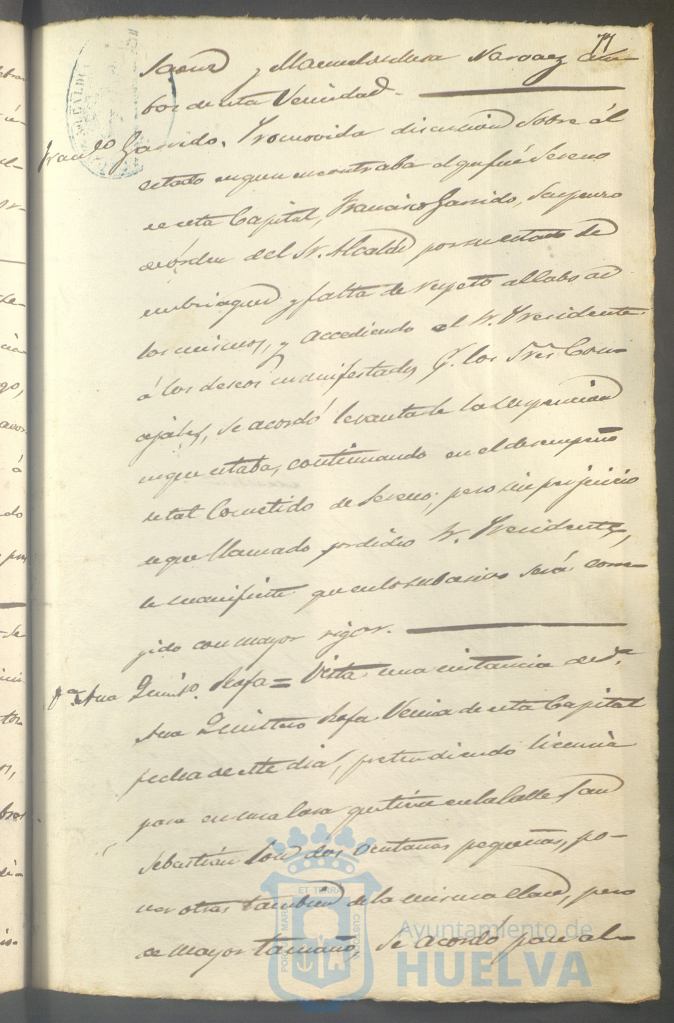 77
Saenz y Manuel Narvaez am-
bos de esta Vecindad.
Franco Garrido. Promovida discucion sobre el
estado en que encontraba el que fué Sereno
de esta Capital, Francisco Garrido, suspenso
de órden del Sr. Alcalde por su estado de
embriaguez y falta de respeto al Cabo de
los mismos, y accediendo el Sr. Presidente
á los deseos manifestados p. los Sres Con-
cejales, se acordó levantarle la suspencion
en que estaba, continuando en el desempeño
de tal Cometido de Sereno; pero sin perjuicio
de que llamado por dicho Sr. Presidente,
le manifieste que en lo subcesivo será corre-
gido con mayor rigor.
Da Ana Quinto. Rafa = Vista una instancia de Da.
Ana Quintero Rafa Vecina de esta Capital
fecha de este dia, pretendiendo licencia
para en una Casa que tiene en la Calle San
Sebastián con dos ventanas pequeñas, po-
ner otras tambien de la misma clase, pero
de mayor tamaño, se acordó pase al
Ayuntamiento de
HUELVA